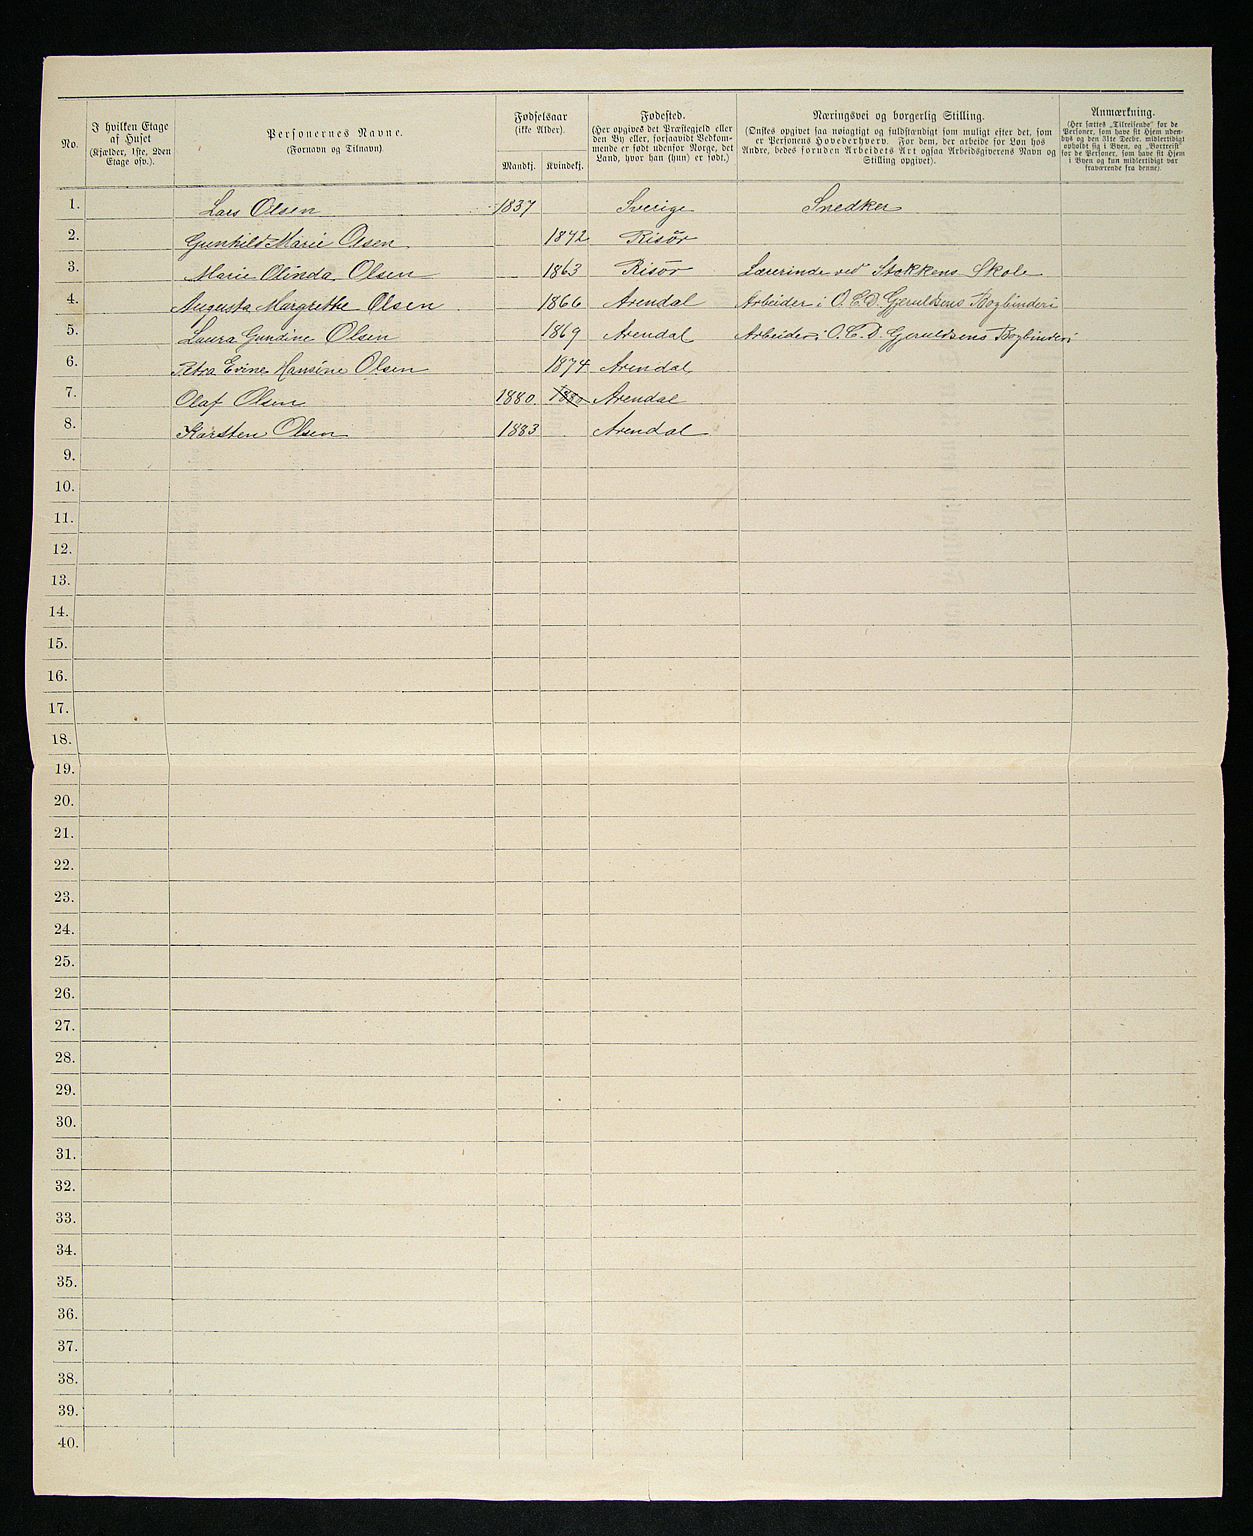 No.
I hvilken Etage
af Huset
(Kjælder, 1ste, 2den
Etage osv.).
Personernes Navne.
(Fornavn og Tilnavn)
Fødselsaar
(ikke Alder).
Mandkj. Kvindekj.
Fødested.
(Her opgives det Præstegjeld eller
den By eller, forsaavidt Vedkom-
mende er født udenfor Norge, det
Land, hvor han (hun) er født.)
Næringsvei og borgerlig Stilling.
(Ønskes opgivet saa nøiagtigt og fuldstændigt som muligt efter det, som
er Personens Hovederhverv. For dem, der arbeide for Løn hos
Andre, bedes foruden Arbeidets Art ogsaa Arbeidsgiverens Navn og
Stilling opgivet).
Anmærkning.
(Her sættes „Tilreisende" for de
Personer, som have sit Hjem uden-
bys og den 31te Decbr. midlertidigt
opholdt sig i Byen, og „Bortreist"
for de Personer, som have sit Hjem
i Byen og kun midlertidigt var
fraværende fra denne).
1. Lars Olsen 1837 Sverige Snedker
2. Gunhild Marie Olsen 1842 Risör
3. Marie Olinda Olsen 1863 Risör Lærerinde ved Stokkens Skole
4. Augusta Margrethe Olsen 1866 Arendal Arbeider i O. C. D. Gjeruldsens Bogbinderi
5. Laura Gundine Olsen 1869 Arendal Arbeider i O. C. D. Gjeruldsens Bogbinderi
6. Petra Evine Hansine Olsen 1874 Arendal
7. Olaf Olsen 1880. 1880 Arendal
8. Karsten Olsen 1883 Arendal
9.
10.
11.
12.
13.
14.
15.
16.
17.
18.
19.
20.
21.
22.
23.
24.
25.
26.
27.
28.
29.
30.
31.
32.
33.
34.
35.
36.
37.
38.
39.
40.